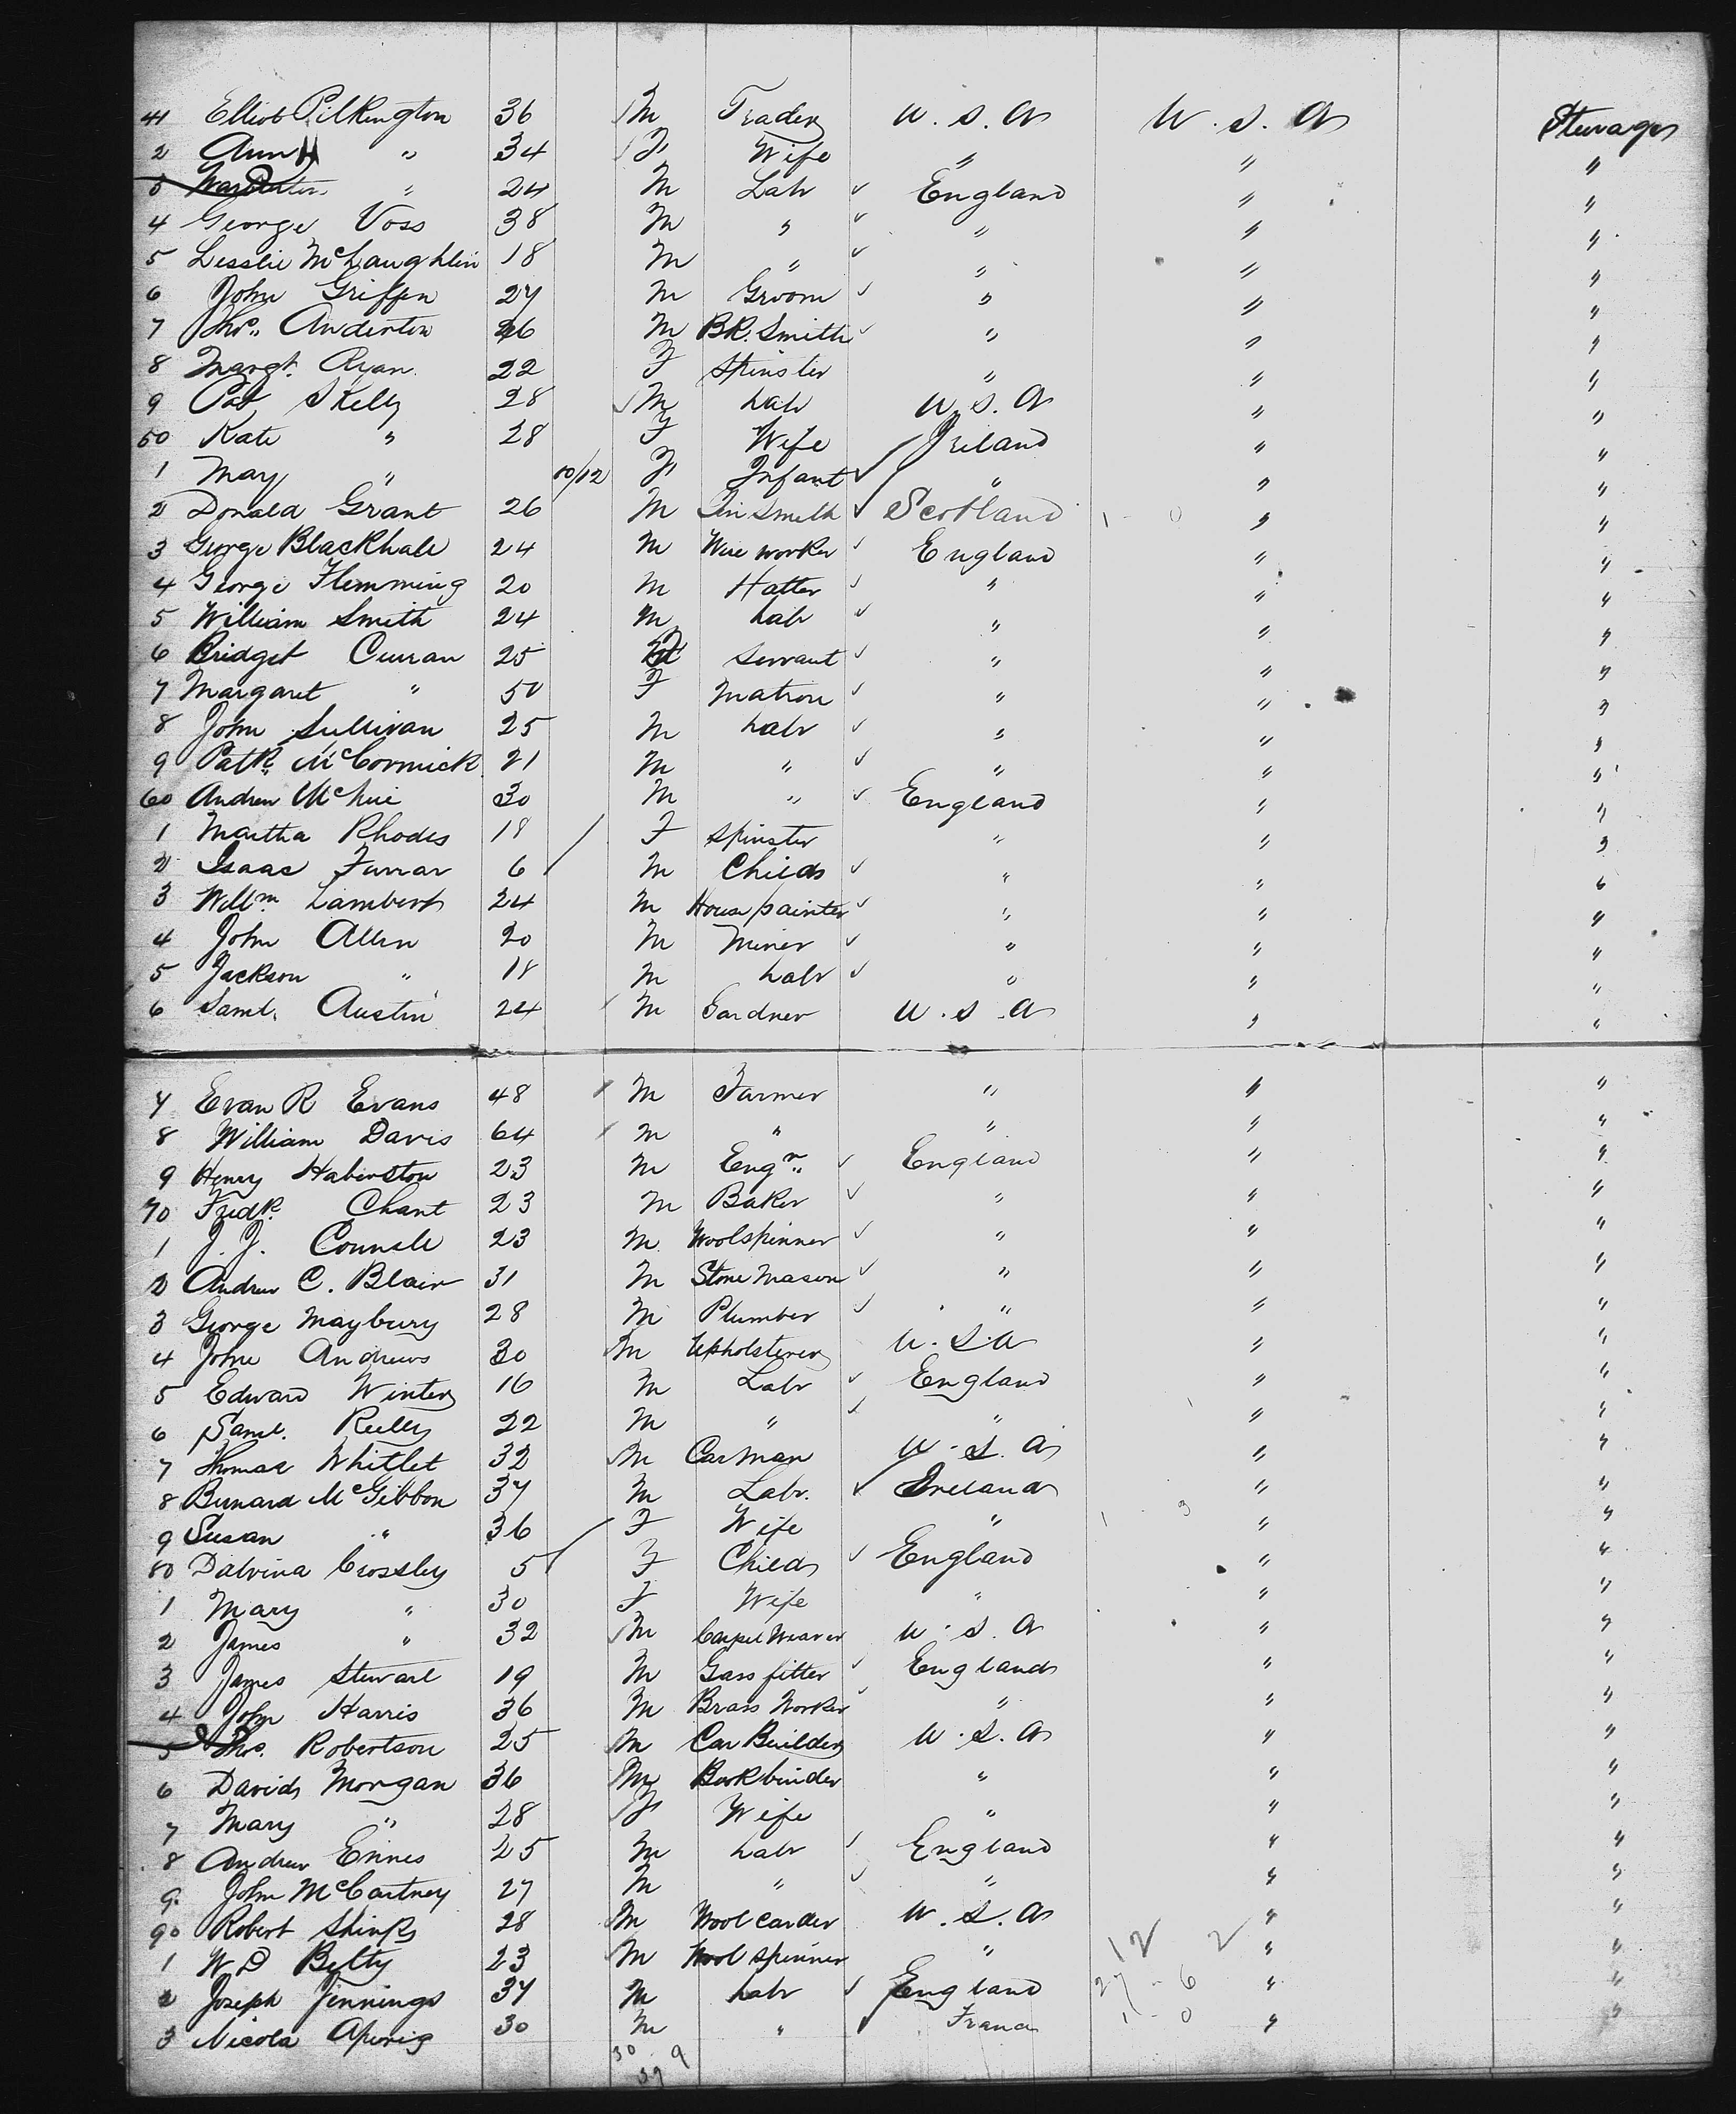 41 Elliot Pilkington 36 M Trader U.S.A U.S.A Steerage
2 Ann H " 34 F Wife " " "
3 " 24 M Labr ✓ England " "
4 George Voss 38 M " ✓ " " "
5 Lesslie McLaughlin 18 M " ✓ " " "
6 John Griffen 27 M Groom ✓ " " "
7 Thos. Anderton 26 M Bk. Smith ✓ " " "
8 Margt. Ryan 22 F Spinster " " "
9 Pat Skelly 28 M Labr U.S.A " "
50 Kate " 28 F Wife Ireland " "
1 May " 10/12 F Infant ✓ " " "
2 Donald Grant 26 M Tin Smith ✓ Scotland 1 - 0 " "
3 George Blackhall 24 M Wire worker ✓ England " "
4 George Flemming 20 M Hatter ✓ " " "
5 William Smith 24 M Labr ✓ " " "
6 Bridget Curran 25 F Servant ✓ " " "
7 Margaret " 50 F Matron ✓ " " "
8 John Sullivan 25 M Labr ✓ " " "
9 Patk. McCormick 21 M " ✓ " " "
60 Andrew 30 M " ✓ England " "
1 Martha Rhodes 18 F Spinster " " "
2 Isaac Furrar 6 M Child ✓ " " "
3 Willm. Lambert 24 M House painter ✓ " " "
4 John Allen 20 M Miner ✓ " " "
5 Jackson " 18 M Labr ✓ " " "
6 Saml. Austin 24 M Gardner U.S.A " "
7 Evan R Evans 48 M Farmer " " "
8 William Davis 64 M " " " "
9 Henry Haberston 23 M Engr. ✓ England " "
70 Fredk. Chant 23 M Baker ✓ " " "
1 J. J. Connell 23 M Woolspinner ✓ " " "
2 Andrew C. Blair 31 M Stone Mason ✓ " " "
3 George Maybury 28 M Plumber ✓ " " "
4 John Andrews 30 M Upholsterer U.S.A " "
5 Edward Winter 16 M Labr ✓ England " "
6 Saml. Reilly 22 M " ✓ " " "
7 Thomas Whitlet 32 M Carman U.S.A " "
8 Bernard McGibbon 37 M Labr. ✓ Ireland " "
9 Susan " 36 F Wife " 1 3 " "
80 Dalvina Crossley 5 F Child ✓ England " "
1 Mary " 30 F Wife " " "
2 James " 32 M Carpet Weaver U.S.A " "
3 James Stewart 19 M Gass fitter ✓ England " "
4 John Harris 36 M Brass Worker ✓ " " "
5 Thos. Robertson 25 M Car Builder U.S.A " "
6 David Morgan 36 M Bookbinder " " "
7 Mary " 28 F Wife " " "
8 Andrew Ennes 25 M Labr ✓ England " "
9 John McCartney 27 M " ✓ " " "
90 Robert 28 M Wool carder U.S.A " "
1 W D Betty 23 M Wool spinner " 12 2 " "
2 Joseph Jennings 37 M Labr ✓ England 27 - 6 " "
3 Nicola 30 M " ✓ France 1 - 0 " "
30 9
39